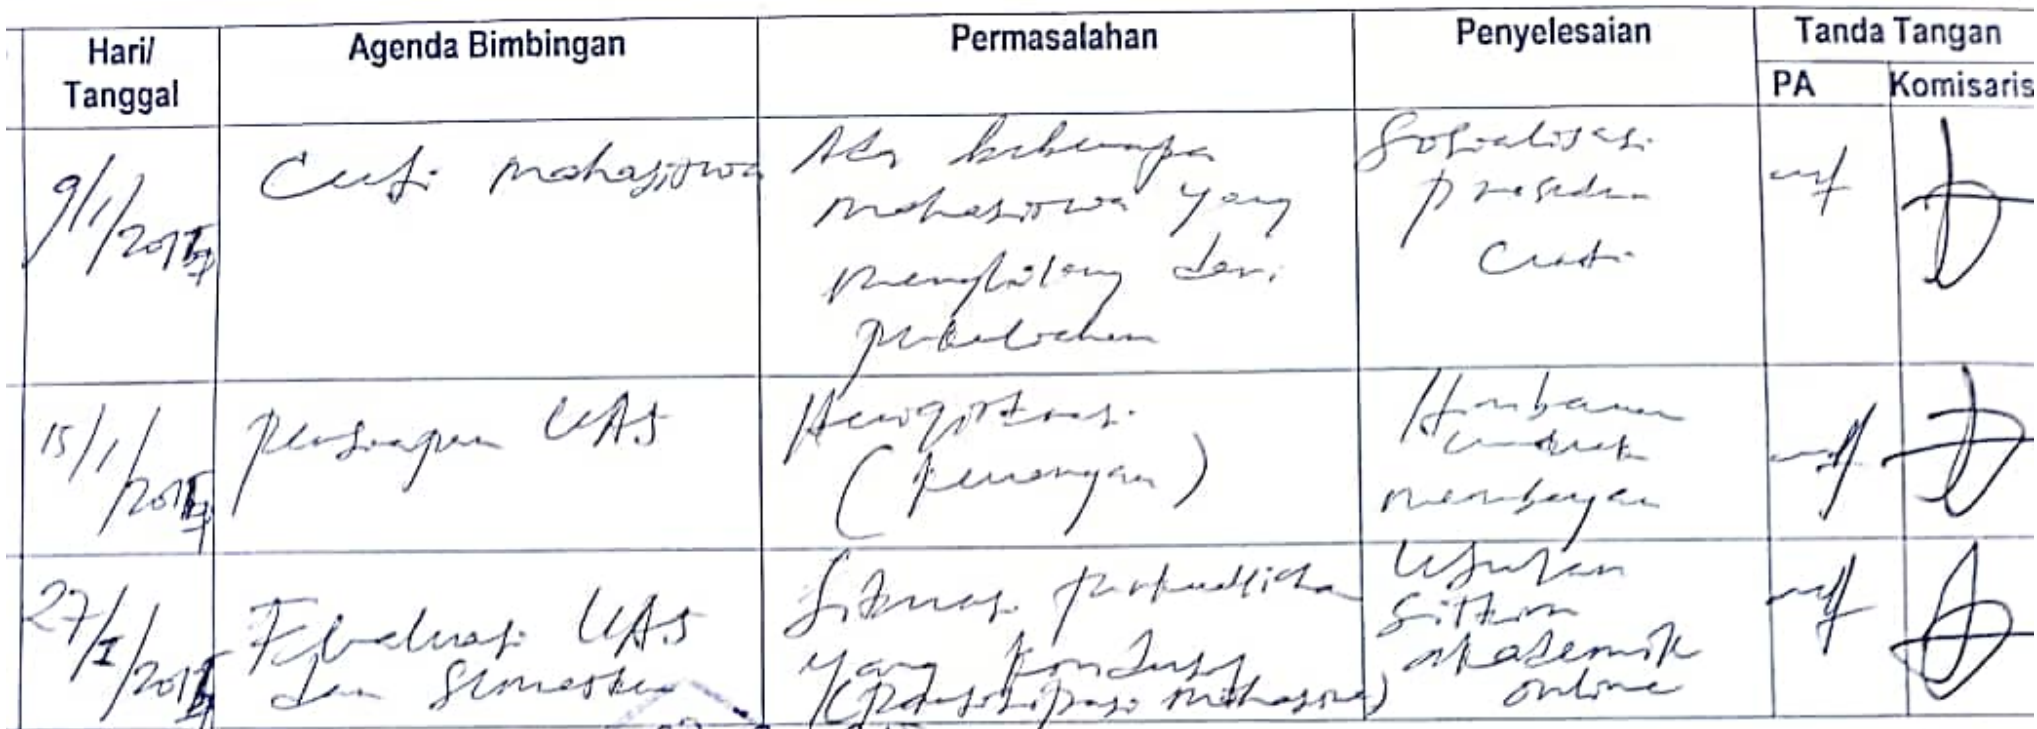 Hari/ Tanggal
Agenda Bimbingan
Permasalahan
Penyelesaian
Tanda Tangan
PA
Komisaris
9/1/2017
Cuti mahasiswa
Ada beberapa
mahasiswa yang
menghilang dari
perkuliahan
Sosialisasi
prosedur
cuti
15/1/2017
Persiapan UAS
(keuangan)
Himbauan
untuk
membayar
27/1/2017
Evaluasi UAS
dan Semester
Situasi perkuliahan
yang kondusif
(partisipasi mahasiswa)
Usulan
sistem
akademik
online